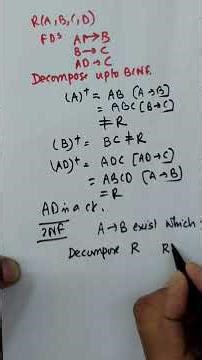 R(A,B,C,D)
FDs A→B
B→C
AD→C
Decompose upto BCNF.
(A)⁺ = AB [A→B]
= ABC [B→C]
≠ R
(B)⁺ = BC ≠ R
(AD)⁺ = ADC [AD→C]
= ABCD [A→B]
= R
AD is a ck.
2NF A→B exist which
Decompose R R